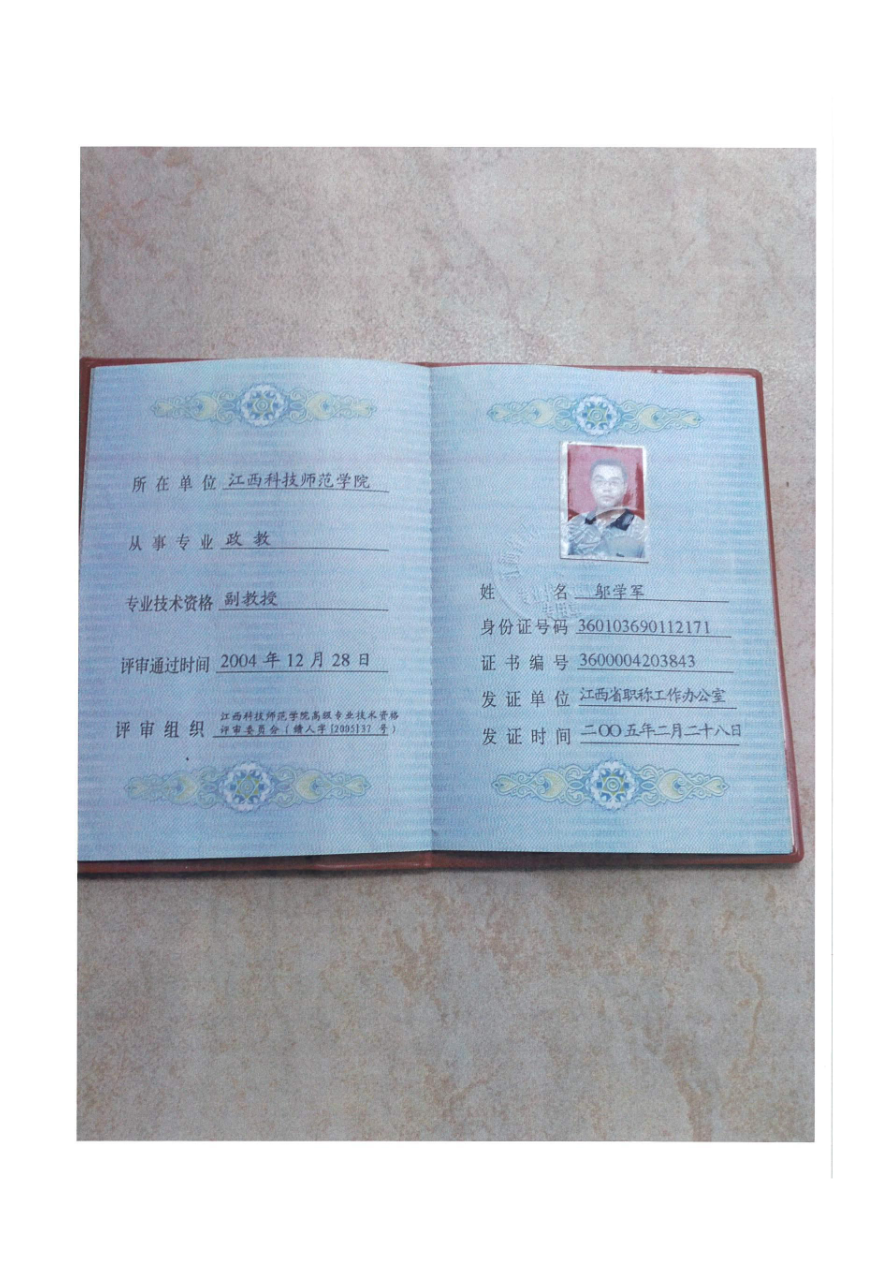 所在单位 江西科技师范学院
从事专业 政教
专业技术资格 副教授
评审通过时间 2004 年 12 月 28 日
评审组织 江西科技师范学院高级专业技术资格
评审委员会（赣人字[2005]37 号）
姓名 邬学军
身份证号码 360103690112171
证书编号 3600004203843
发证单位 江西省职称工作办公室
发证时间 二〇〇五年二月二十八日